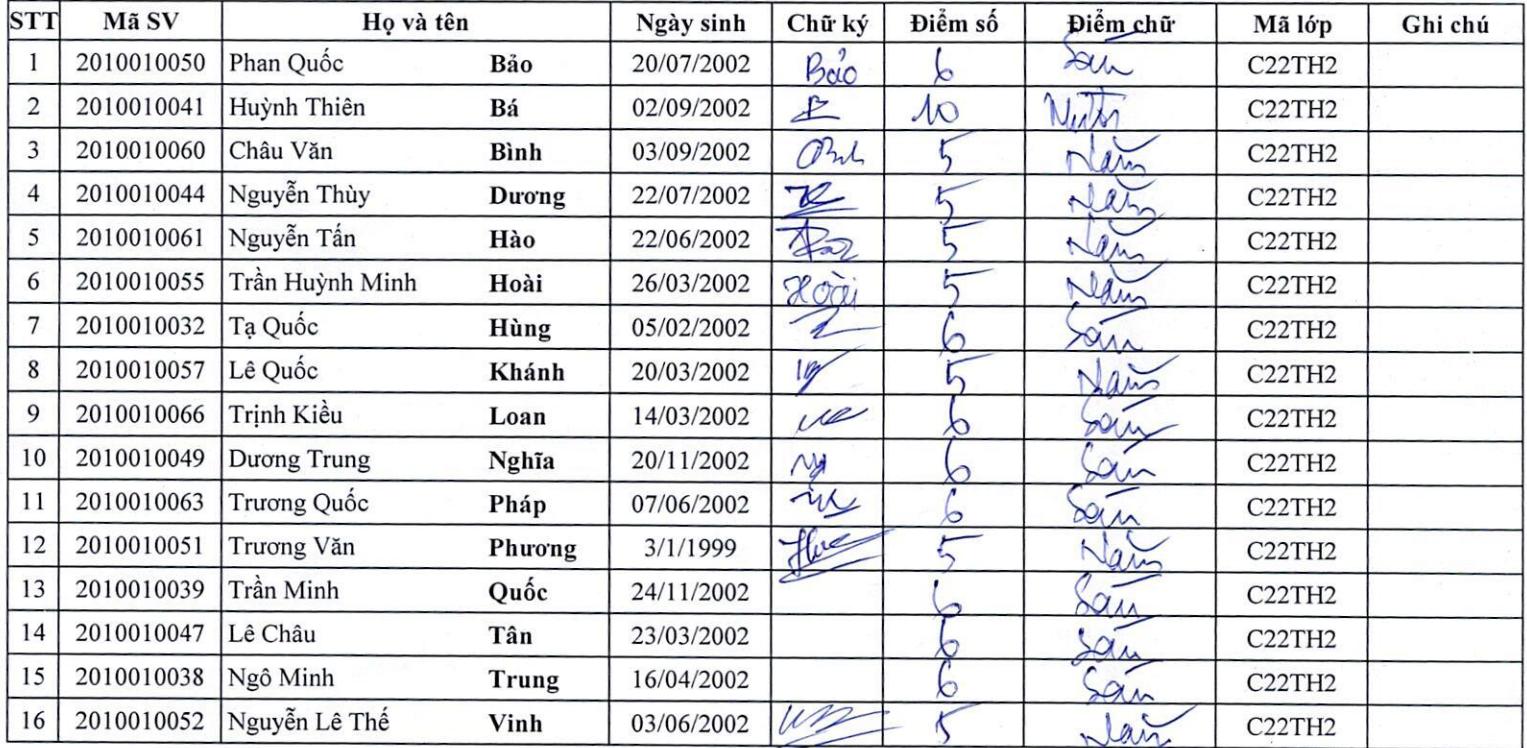 STT Mã SV Họ và tên Ngày sinh Chữ ký Điểm số Điểm chữ Mã lớp Ghi chú
1 2010010050 Phan Quốc Bảo 20/07/2002 Bảo 6 Sáu C22TH2
2 2010010041 Huỳnh Thiên Bá 02/09/2002 10 Mười C22TH2
3 2010010060 Châu Văn Bình 03/09/2002 5 Năm C22TH2
4 2010010044 Nguyễn Thùy Dương 22/07/2002 5 Năm C22TH2
5 2010010061 Nguyễn Tấn Hào 22/06/2002 5 Năm C22TH2
6 2010010055 Trần Huỳnh Minh Hoài 26/03/2002 Hoài 5 Năm C22TH2
7 2010010032 Tạ Quốc Hùng 05/02/2002 6 Sáu C22TH2
8 2010010057 Lê Quốc Khánh 20/03/2002 5 Năm C22TH2
9 2010010066 Trịnh Kiều Loan 14/03/2002 6 Sáu C22TH2
10 2010010049 Dương Trung Nghĩa 20/11/2002 6 Sáu C22TH2
11 2010010063 Trương Quốc Pháp 07/06/2002 6 Sáu C22TH2
12 2010010051 Trương Văn Phương 3/1/1999 5 Năm C22TH2
13 2010010039 Trần Minh Quốc 24/11/2002 6 Sáu C22TH2
14 2010010047 Lê Châu Tân 23/03/2002 6 Sáu C22TH2
15 2010010038 Ngô Minh Trung 16/04/2002 6 Sáu C22TH2
16 2010010052 Nguyễn Lê Thế Vinh 03/06/2002 5 Năm C22TH2